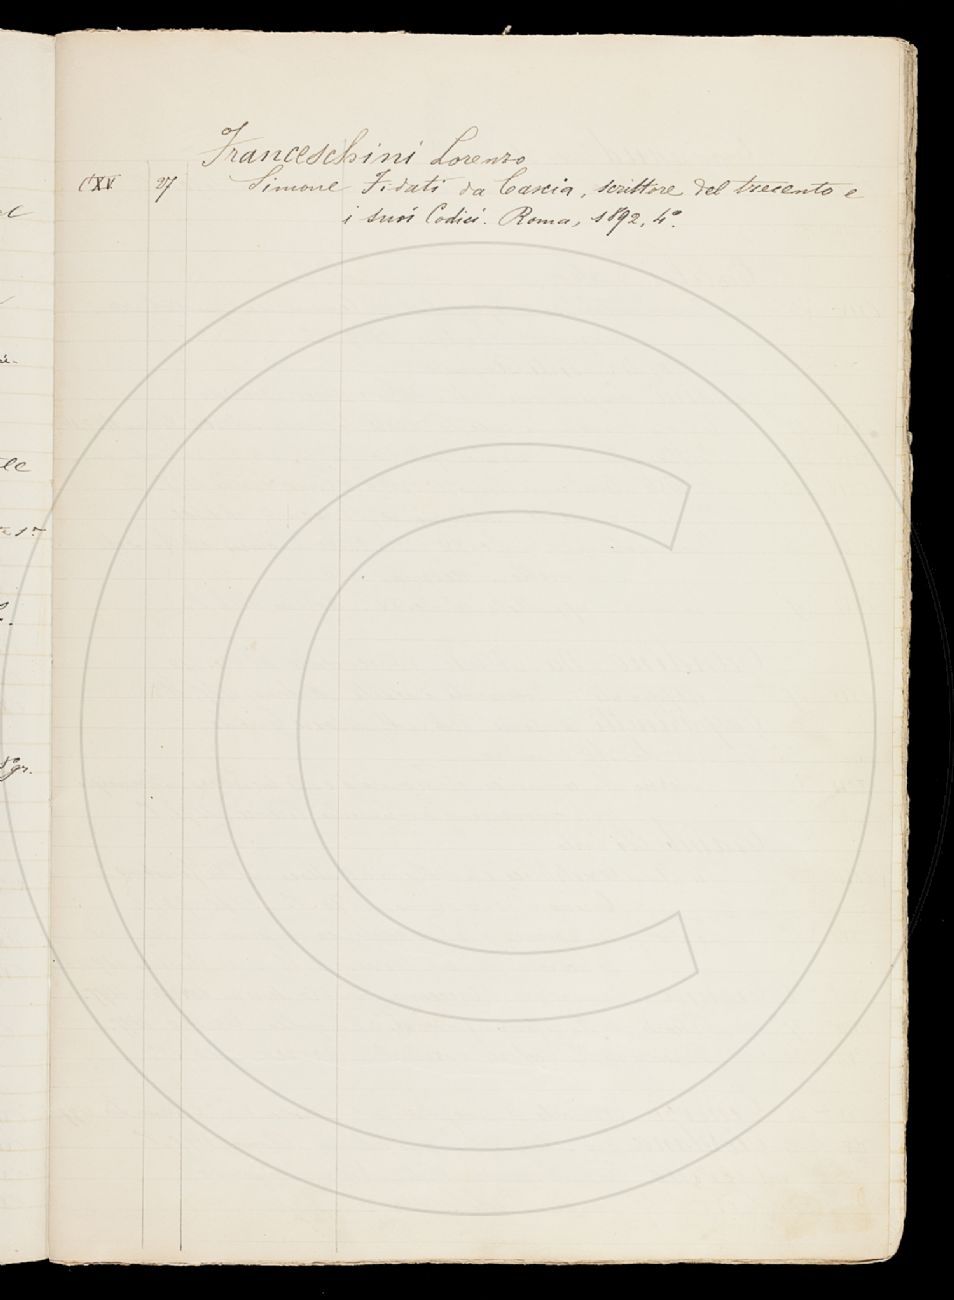 Franceschini Lorenzo
CXV 27 Simone Fidati da Cascia, scrittore del trecento e
i suoi Codici. Roma, 1892, 4º.